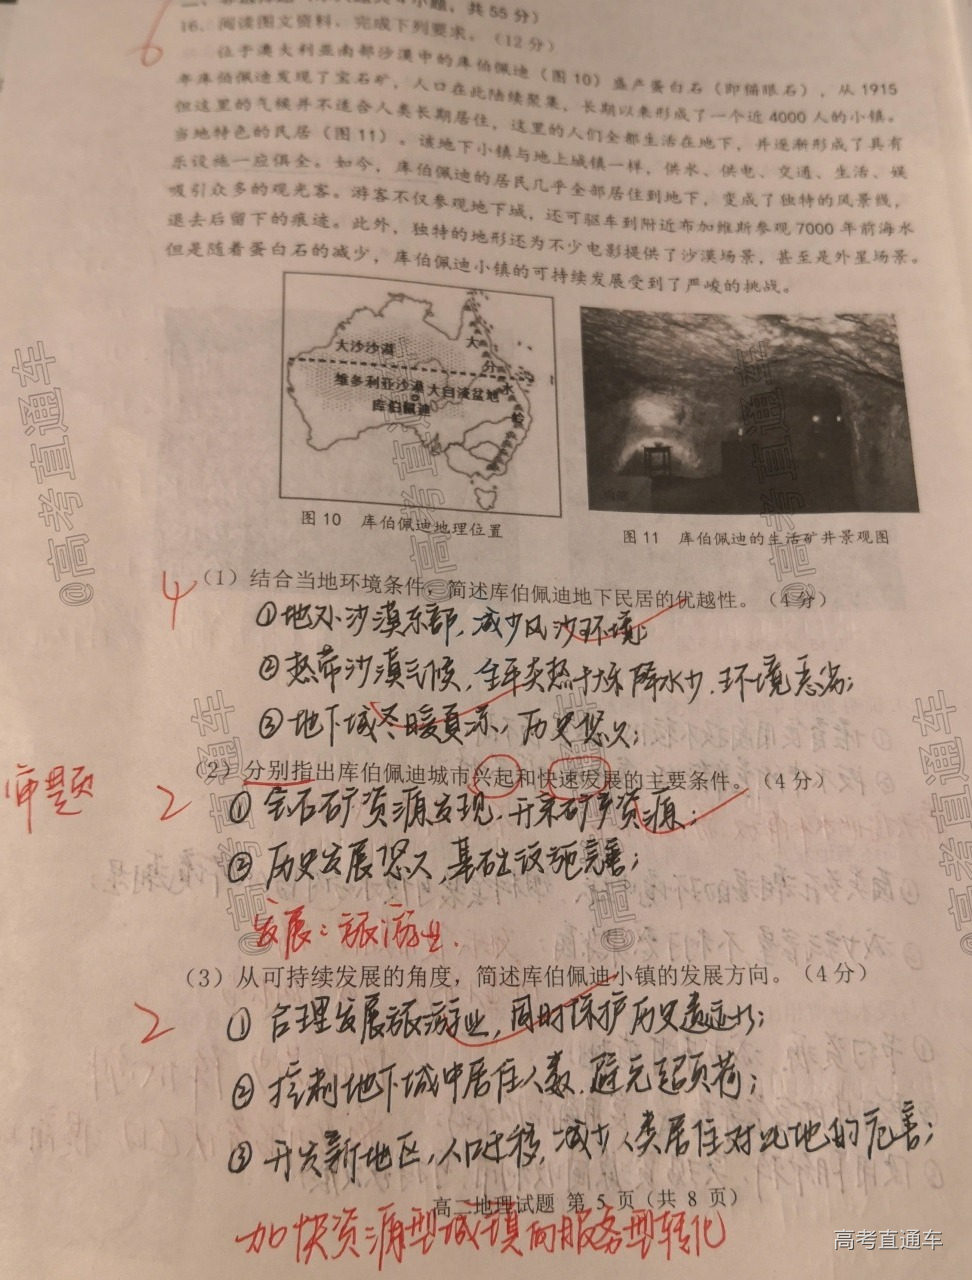 共 55 分)
16. 阅读图文资料，完成下列要求。(12 分)
6
位于澳大利亚南部沙漠中的库伯佩迪（图 10）盛产蛋白石（即猫眼石），从 1915
年库伯佩迪发现了宝石矿，人口在此陆续聚集，长期以来形成了一个近 4000 人的小镇。
但这里的气候并不适合人类长期居住，这里的人们全都生活在地下，并逐渐形成了具有
当地特色的民居（图 11）。该地下小镇与地上城镇一样，供水、供电、交通、生活、娱
乐设施一应俱全。如今，库伯佩迪的居民几乎全部居住到地下，变成了独特的风景线，
吸引众多的观光客。游客不仅参观地下城，还可驱车到附近布加维斯参观 7000 年前海水
退去后留下的痕迹。此外，独特的地形还为不少电影提供了沙漠场景，甚至是外星场景。
但是随着蛋白石的减少，库伯佩迪小镇的可持续发展受到了严峻的挑战。
大沙沙漠
大分水岭
维多利亚沙漠 大自流盆地
库伯佩迪
图 10 库伯佩迪地理位置
图 11 库伯佩迪的生活矿井景观图
4
(1) 结合当地环境条件，简述库伯佩迪地下民居的优越性。(4 分)
①地处沙漠东部，减少风沙环境；
②热带沙漠气候，全年炎热干燥降水少，环境恶劣；
③地下城冬暖夏凉，历史悠久；
(2) 分别指出库伯佩迪城市兴起和快速发展的主要条件。(4 分)
审题
2
①宝石矿资源发现，开采矿产资源；
②历史发展悠久，基础设施完善；
发展：旅游业.
(3) 从可持续发展的角度，简述库伯佩迪小镇的发展方向。(4 分)
2
①合理发展旅游业，同时保护历史遗迹；
②控制地下城中居住人数，避免超负荷；
③开发新地区，人口迁移，减少人类居住对此地的危害；
高二地理试题 第 5 页（共 8 页）
加快资源型城镇向服务型转化
@高考直通车
@高考直通车
@高考直通车
@高考直通车
@高考直通车
@高考直通车
高考直通车